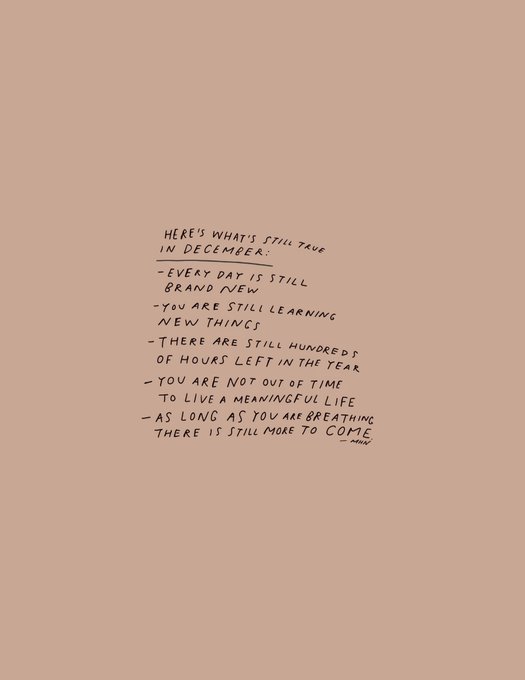 HERE'S WHAT'S STILL TRUE
IN DECEMBER:
- EVERY DAY IS STILL
BRAND NEW
- YOU ARE STILL LEARNING
NEW THINGS
- THERE ARE STILL HUNDREDS
OF HOURS LEFT IN THE YEAR
- YOU ARE NOT OUT OF TIME
TO LIVE A MEANINGFUL LIFE
- AS LONG AS YOU ARE BREATHING
THERE IS STILL MORE TO COME.
- MHN